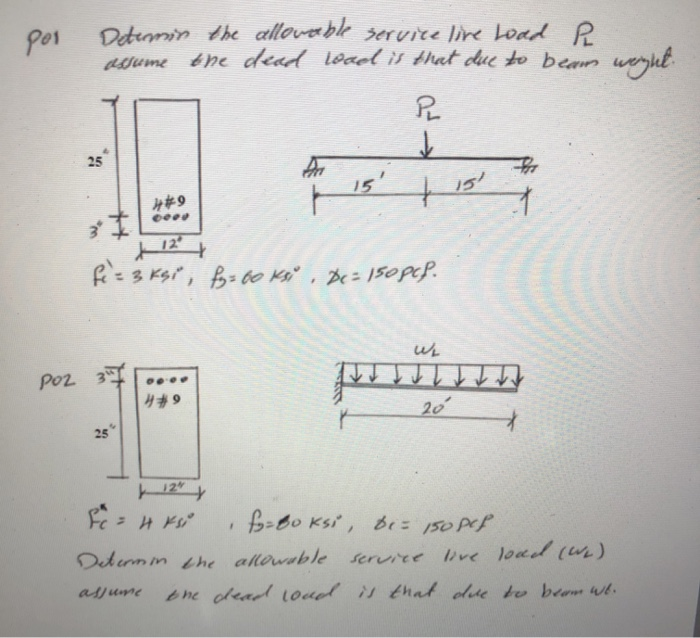 P01 Determin the allowable service live load PL
assume the dead load is that due to beam weight.
PL
25"
15' 15'
4#9
3"
12"
fc' = 3 ksi, fy = 60 ksi, γc = 150 pcf.
WL
P02 3"
4#9
20'
25"
12"
fc' = 4 ksi, fy = 60 ksi, γc = 150 pcf
Determin the allowable service live load (WL)
assume the dead load is that due to beam wt.